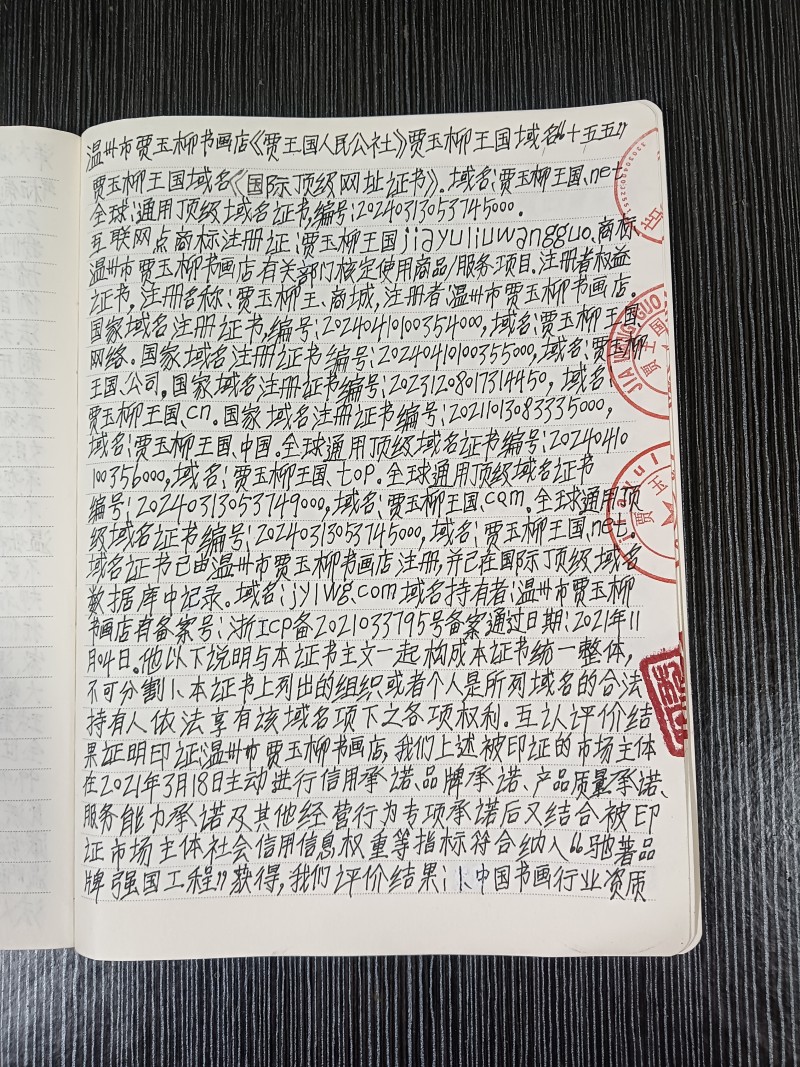 温州市贾玉柳书画店《贾王国人民公社》贾玉柳王国域名“十五五”
贾玉柳王国域名《国际顶级网址证书》.域名:贾玉柳王国、net
全球:通用顶级域名证书,编号:20240313053745000.
互联网点商标注册证:贾玉柳王国jiayuliuwangguo、商标
温州市贾玉柳书画店有关部门核定使用商品/服务项目.注册者权益
证书,注册名称:贾玉柳王、商城,注册者:温州市贾玉柳书画店。
国家域名注册证书,编号:20240410100354000,域名:贾玉柳王国、
网络.国家域名注册证书编号:20240410100355000,域名:贾玉柳
王国、公司,国家域名注册证书编号:20231208017314450,域名:
贾玉柳王国、cn.国家域名注册证书编号:20211013083335000,
域名:贾玉柳王国、中国.全球通用顶级域名证书编号:20240410
100356000,域名:贾玉柳王国、top.全球通用顶级域名证书
编号:20240313053749000,域名:贾玉柳王国、com.全球通用顶
级域名证书编号:20240313053745000,域名:贾玉柳王国、net.
域名证书已由温州市贾玉柳书画店注册,并已在国际顶级域名
数据库中记录.域名:jylwg、com域名持有者:温州市贾玉柳
书画店有备案号:浙ICP备2021033795号备案通过日期:2021年11
月04日.他以下说明与本证书主文一起构成本证书统一整体,
不可分割1、本证书上列出的组织或者个人是所列域名的合法
持有人依法享有该域名项下之各项权利.互认评价结
果证明印证:温州市贾玉柳书画店,我们上述被印证的市场主体
在2021年3月18日主动进行信用承诺、品牌承诺、产品质量承诺、
服务能力承诺及其他经营行为专项承诺后又结合被印
证市场主体社会信用信息权重等指标符合纳入“驰著品
牌强国工程”获得,我们评价结果:1、中国书画行业资质